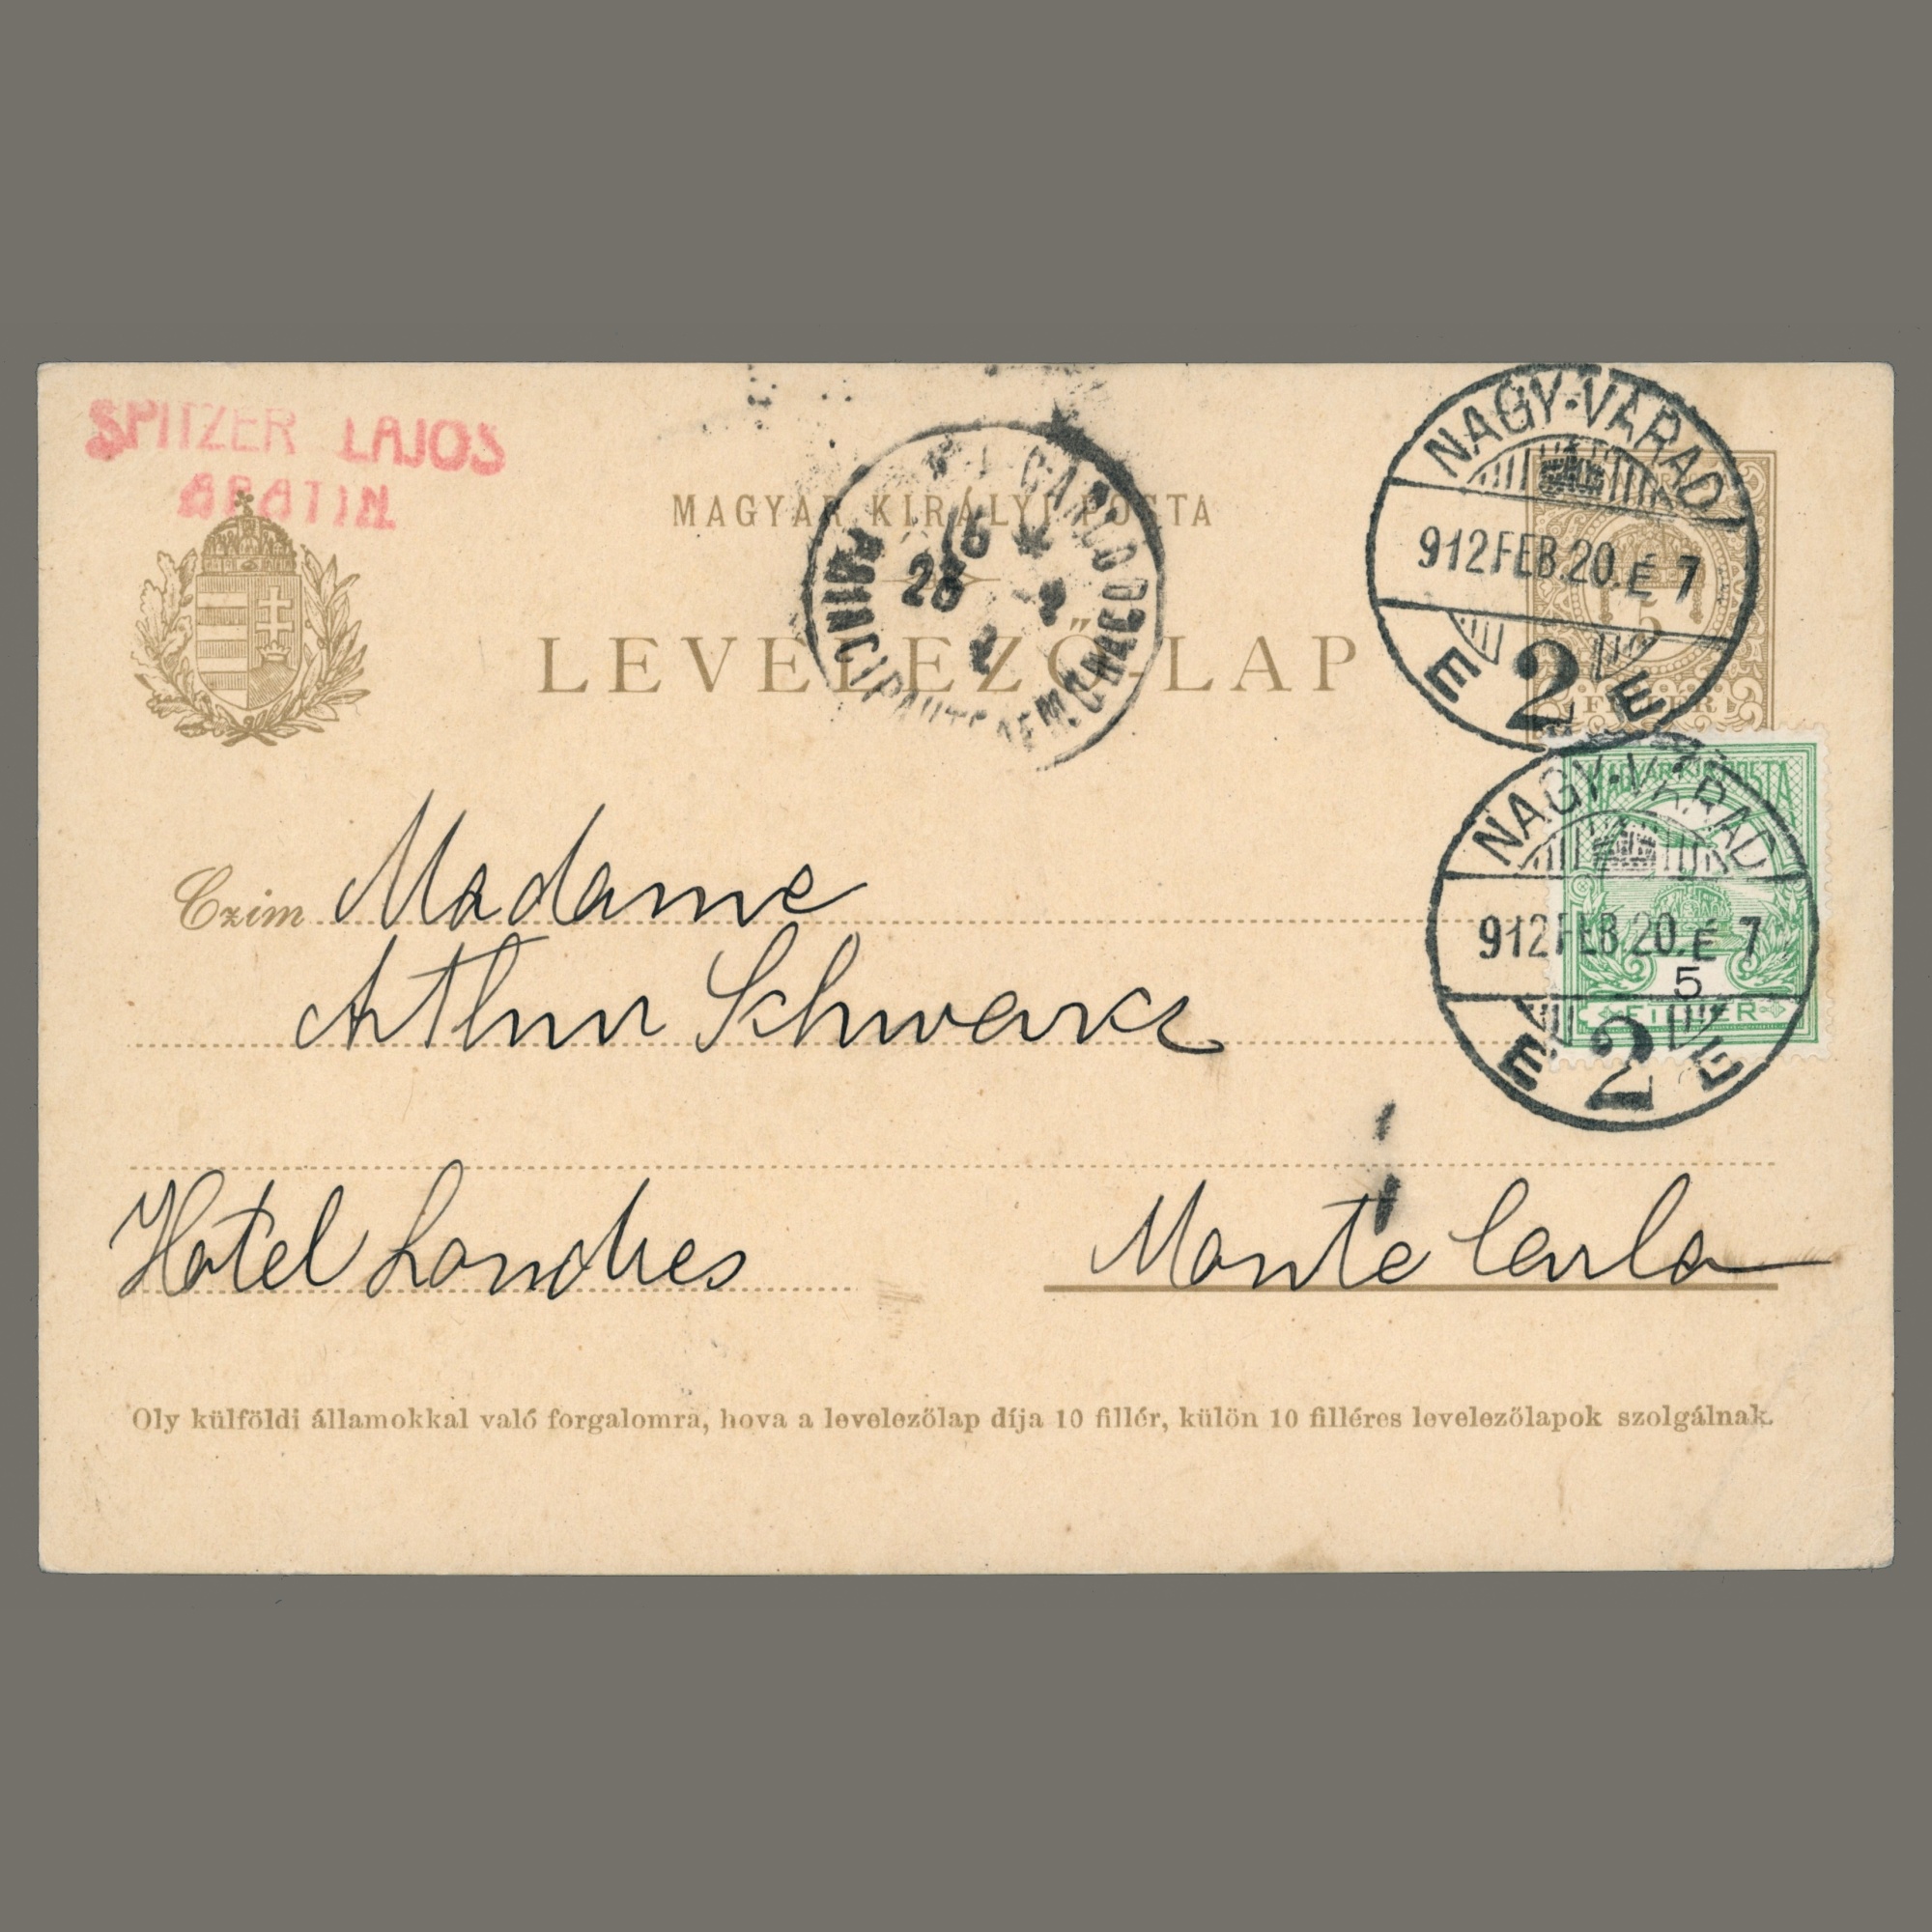 SPITZER LAJOS
APATIN
MAGYAR KIRÁLYI POSTA
LEVELEZŐ-LAP
MONTE CARLO
PRINCIPAUTÉ DE MONACO
16
23
2
NAGY-VÁRAD
912 FEB.20. É 7
E 2 E
5
FILLÉR
MAGYAR KIR. POSTA
NAGY-VÁRAD
912 FEB.20. É 7
5
FILLÉR
E 2 E
Czim Madame
Arthur Schwarcz
Hotel Londres Monte Carlo
Oly külföldi államokkal való forgalomra, hova a levelezőlap díja 10 fillér, külön 10 filléres levelezőlapok szolgálnak.